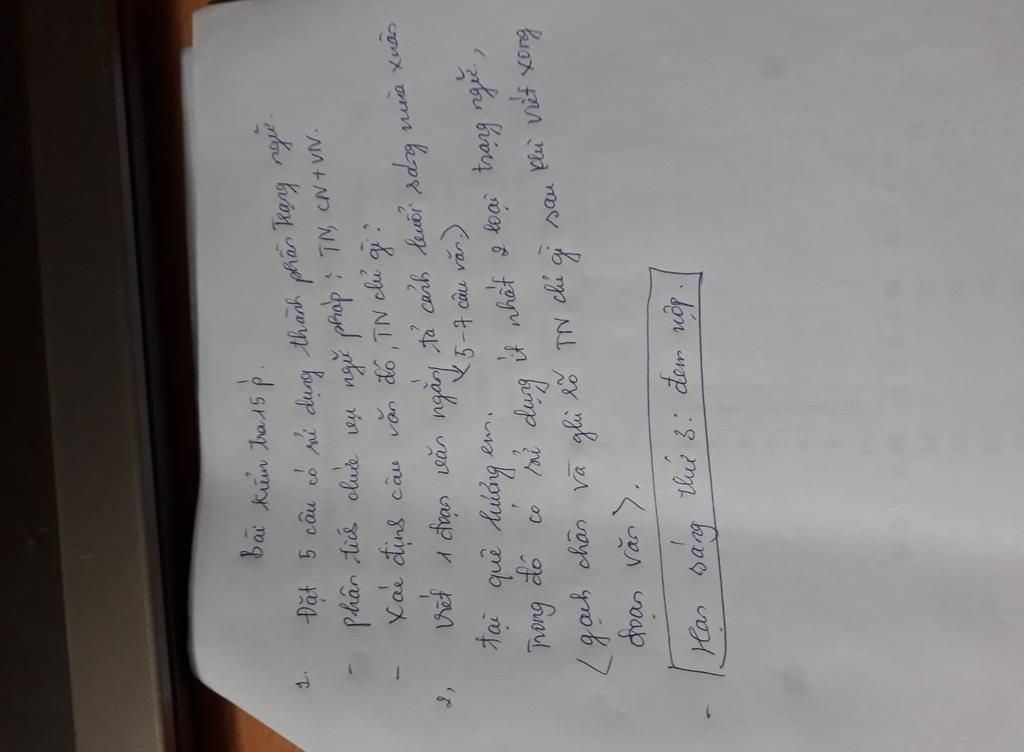 Bài kiểm tra 15 p.
1. Đặt 5 câu có sử dụng thành phần Trạng ngữ.
- Phân tích chức vụ ngữ pháp : TN, CN + VN.
- Xác định câu văn đó, TN chỉ gì?
2, Viết 1 đoạn văn ngắn tả cảnh buổi sáng mùa xuân
↳ 5-7 câu văn.)
tại quê hương em.
Trong đó có sử dụng ít nhất 2 loại trạng ngữ,
( gạch chân và ghi rõ TN chỉ gì sau khi viết xong
đoạn văn ).
- Hạn sáng thứ 3: đem nộp.